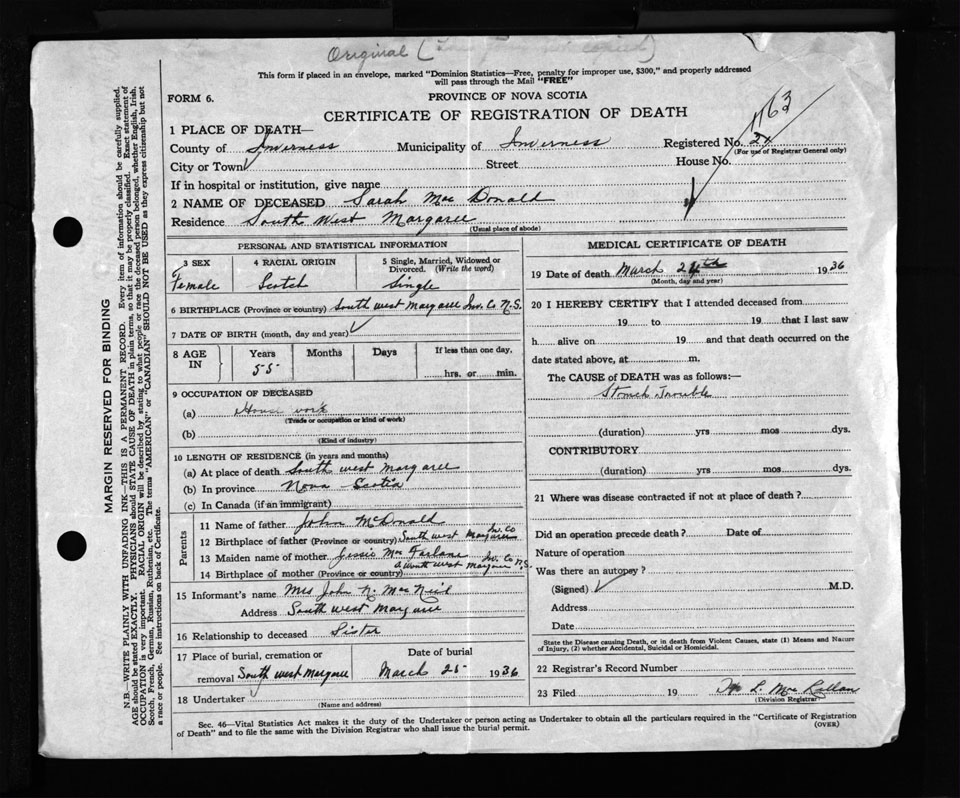 Original (
This form if placed in an envelope, marked "Dominion Statistics—Free, penalty for improper use, $300," and properly addressed
will pass through the Mail "FREE"
FORM 6.
PROVINCE OF NOVA SCOTIA
CERTIFICATE OF REGISTRATION OF DEATH
1163
1 PLACE OF DEATH—
County of Inverness Municipality of Inverness Registered No.
(For use of Registrar General only)
City or Town Street House No.
If in hospital or institution, give name
2 NAME OF DECEASED Sarah Mac Donald
Residence South West Margaree
(Usual place of abode)
PERSONAL AND STATISTICAL INFORMATION
3 SEX 4 RACIAL ORIGIN 5 Single, Married, Widowed or
Divorced. (Write the word)
Female Scotch Single
6 BIRTHPLACE (Province or country) South west Margaree Inv. Co N.S.
7 DATE OF BIRTH (month, day and year)
8 AGE IN Years Months Days If less than one day,
55 hrs. or min.
9 OCCUPATION OF DECEASED
(a) House work
(Trade or occupation or kind of work)
(b)
(Kind of industry)
10 LENGTH OF RESIDENCE (in years and months)
(a) At place of death South west Margaree
(b) In province Nova Scotia
(c) In Canada (if an immigrant)
Parents
11 Name of father John McDonald
12 Birthplace of father (Province or country) South west Margaree Inv. Co
13 Maiden name of mother Jessie Mac Farlane
14 Birthplace of mother (Province or country) South west Margaree Inv. Co N.S.
15 Informant's name Mrs John N. MacNeil
Address South west Margaree
16 Relationship to deceased Sister
17 Place of burial, cremation or Date of burial
removal South west Margaree March 25 1936
18 Undertaker
(Name and address)
MEDICAL CERTIFICATE OF DEATH
19 Date of death March 24th 1936
(Month, day and year)
20 I HEREBY CERTIFY that I attended deceased from
19 to 19 that I last saw
h alive on 19 and that death occurred on the
date stated above, at m.
The CAUSE of DEATH was as follows:—
Stomch Trouble
(duration) yrs mos dys.
CONTRIBUTORY
(duration) yrs mos dys.
21 Where was disease contracted if not at place of death?
Did an operation precede death? Date of
Nature of operation
Was there an autopsy?
(Signed) M.D.
Address
Date
State the Disease causing Death, or in death from Violent Causes, state (1) Means and Nature
of Injury, (2) whether Accidental, Suicidal or Homicidal.
22 Registrar's Record Number
23 Filed 19 L. Mac Lellan
(Division Registrar)
Sec. 46—Vital Statistics Act makes it the duty of the Undertaker or person acting as Undertaker to obtain all the particulars required in the "Certificate of Registration
of Death" and to file the same with the Division Registrar who shall issue the burial permit.
(OVER)
MARGIN RESERVED FOR BINDING
N.B.—WRITE PLAINLY WITH UNFADING INK—THIS IS A PERMANENT RECORD. Every item of information should be carefully supplied.
AGE should be stated EXACTLY. PHYSICIANS should STATE CAUSE OF DEATH in plain terms, so that it may be properly classified. Exact statement of
OCCUPATION is very important. RACIAL ORIGIN will be described by stating to what people or race the deceased person belonged, whether English, Irish,
Scotch, French, German, Russian, Ruthenian, etc. The terms "AMERICAN" or "CANADIAN" SHOULD NOT BE USED as they express citizenship but not
a race or people. See instructions on back of Certificate.